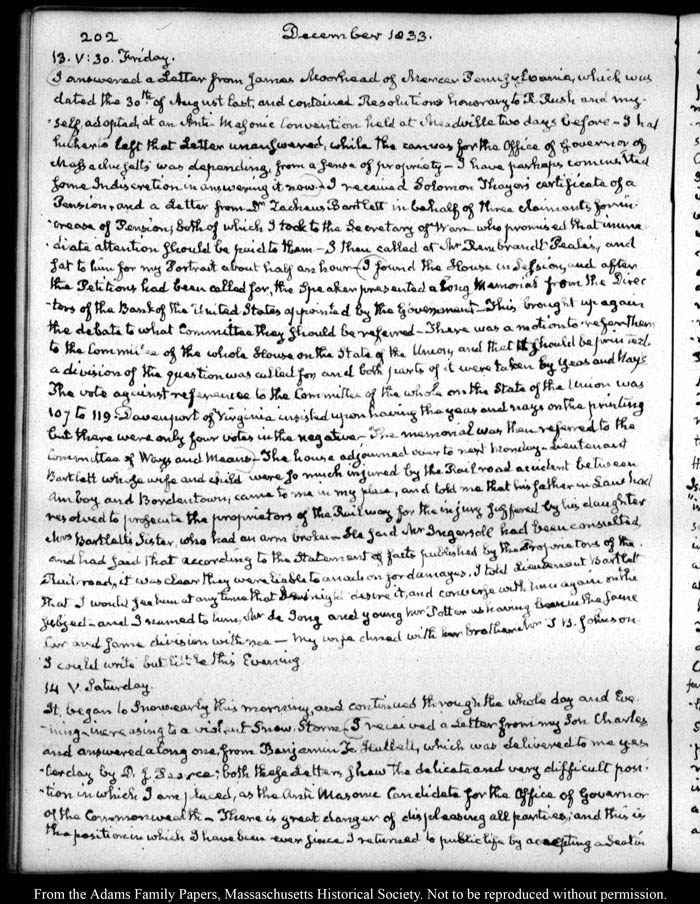 202 December 1833.
13. V:30. Friday.
I answered a Letter from James Moorhead of Mercer Pennsylvania, which was
dated the 30th of August last, and contained Resolutions honorary to R. Rush and my-
self adopted, at an Anti-Masonic Convention held at Meadville two days before – I had
hitherto left that Letter unanswered, while the canvas for the Office of Governor of
Massachusetts was depending, from a sense of propriety – I have perhaps committed
some Indiscretion in answering it now – I received Solomon Thayer's certificate of a
Pension, and a Letter from Dr Zacheus Bartlett in behalf of three claimants for in-
crease of Pension; both of which I took to the Secretary of War who promised that imme-
diate attention should be paid to them – I then called at Mr Rembrandt Peale's, and
sat to him for my Portrait about half an hour – I found the House in Session, and after
the Petitions had been called for, the Speaker presented a long Memorial from the Direc-
tors of the Bank of the United States appointed by the Government – This brought up again
the debate to what Committee they should be referred – There was a motion to refer them
to the Committee of the whole House on the State of the Union, and that it should be printed.
a division of the question was called for, and both parts of it were taken by Yeas and Nays
The vote against reference to the Committee of the whole on the State of the Union was
107 to 119. Davenport of Virginia insisted upon having the yeas and nays on the printing
but there were only four votes in the negative – The memorial was then referred to the
Committee of Ways and Means – The house adjourned over to next Monday – Lieutenant
Bartlett whose wife and child were so much injured by the Rail road accident between
Amboy and Bordentown, came to me in my place, and told me that his father in Law had
resolved to prosecute the proprietors of the Railway for the injury suffered by his daughter
Mrs Bartlett's Sister, who had an arm broken – He said Mr Ingersoll had been consulted,
and had said that according to the Statement of facts published by the Proprietors of the
Railroad, it was clear they were liable to an action for damages. I told Lieutenant Bartlett
that I would see him at any time that he might desire it, and converse with him again on the
subject – and I named to him, Mr de Jong and young Mr Potter as having been in the same
Car and same division with me – My wife dined with her brother Mr T. B. Johnson.
I could write but little this Evening.
14 V. Saturday.
It began to Snow early this morning, and continued through the whole day and Eve-
ning, increasing to a violent Snow Storm – I received a Letter from my Son Charles
and answered a long one, from Benjamin F. Hallett, which was delivered to me yes-
terday by D. J. Pearce; both these Letters shew the delicate and very difficult posi-
tion in which I am placed, as the Anti Masonic Candidate for the Office of Governor
of the Commonwealth – There is great danger of displeasing all parties; and this is
the position in which I have been ever since I returned to public life by accepting a Seat in
From the Adams Family Papers, Massachusetts Historical Society. Not to be reproduced without permission.